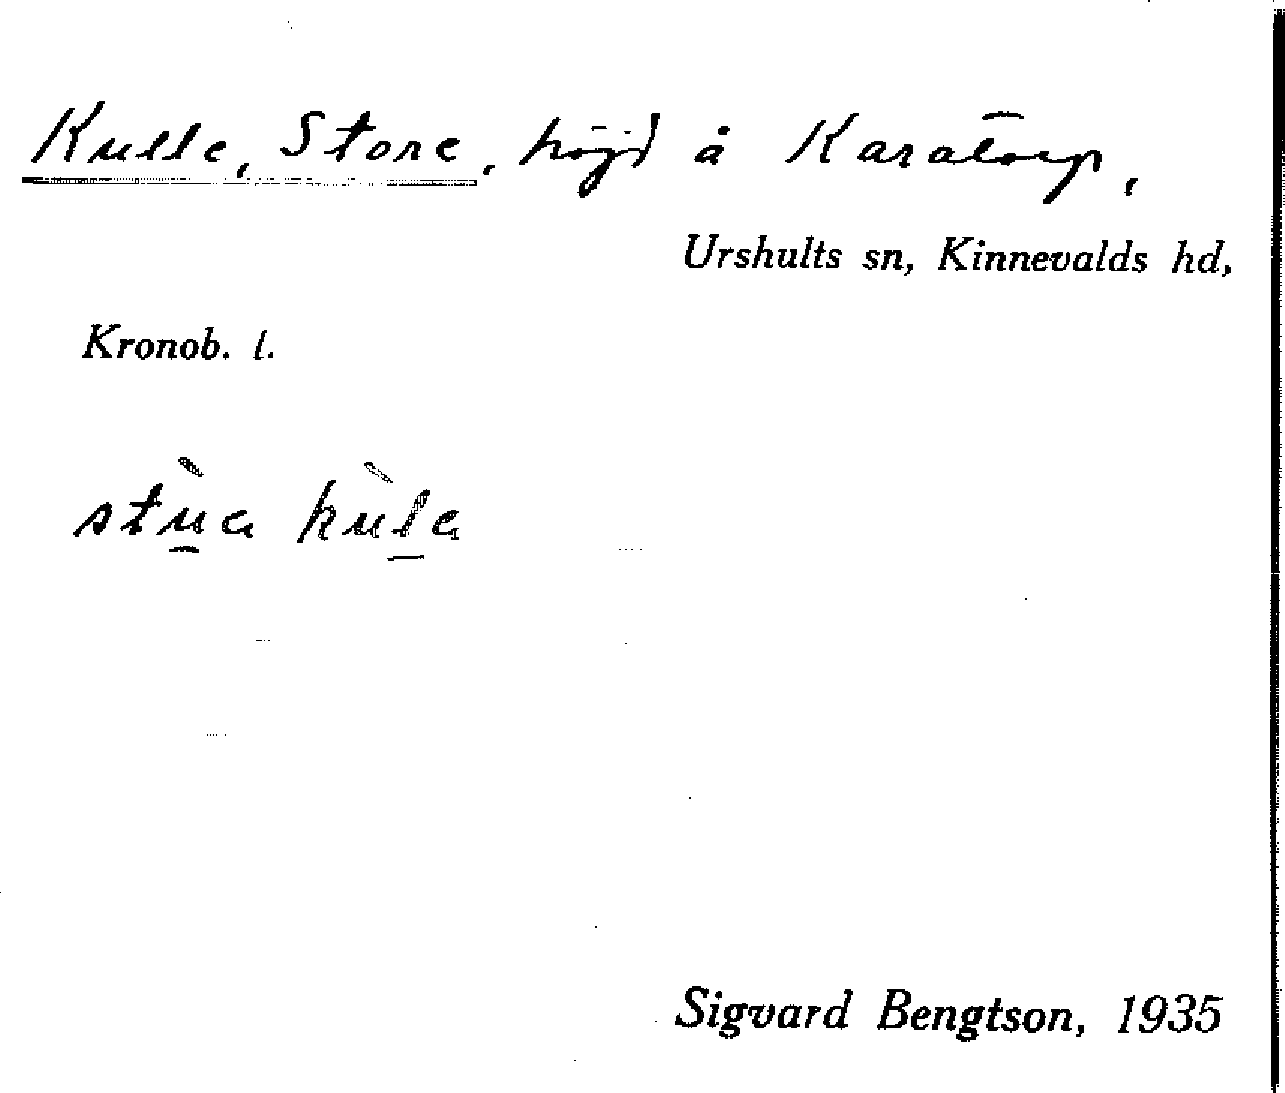 Kulle, Store, höjd å Karatorp,
Urshults sn, Kinnevalds hd,
Kronob. l.
Sigvard Bengtson, 1935